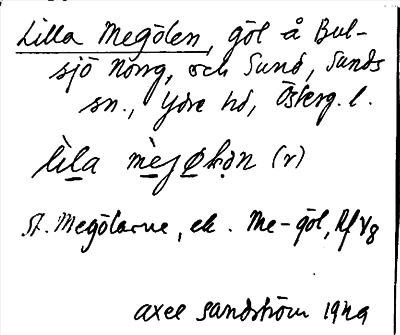 Lilla Megölen, göl å Bul-
sjö Norrg, och Sund, Sunds
sn., Ydre hd, Österg. l.
lìla mèjøkən (r)
st. Megölarne, ek. Me-göl, Rf
axel sandström 1929